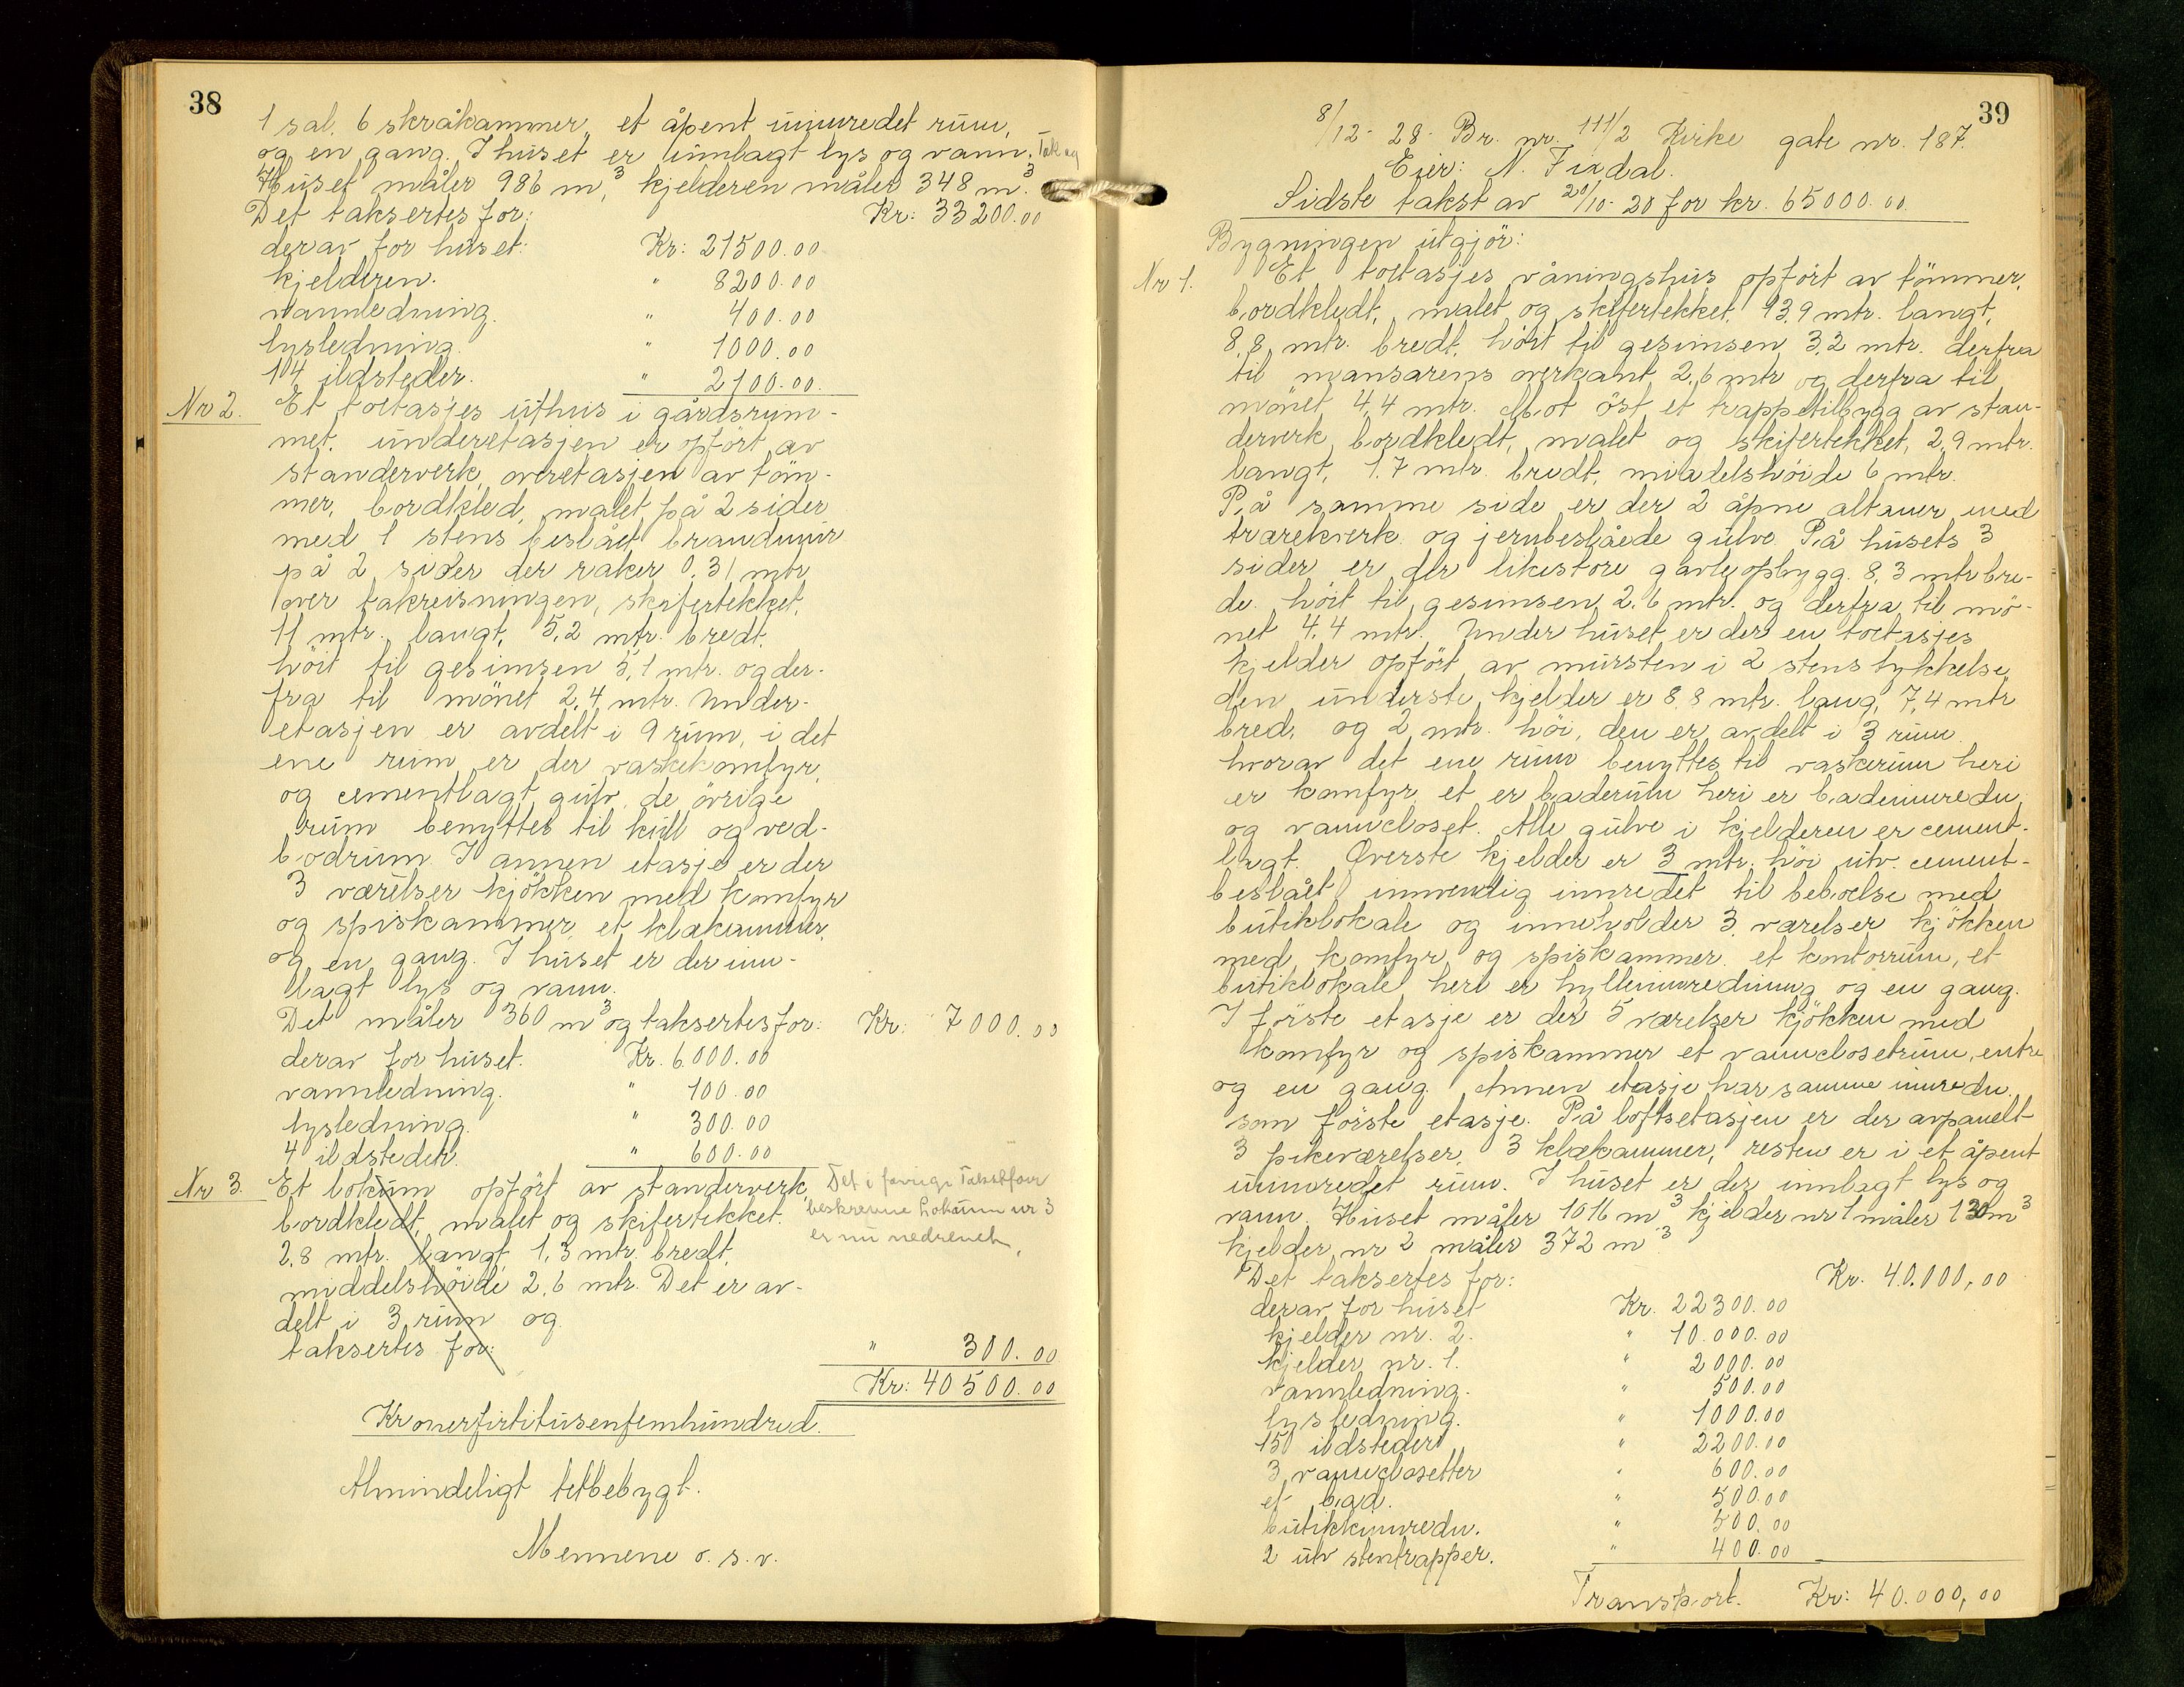 38
1 sal. 6 skråkammer, et åpent uinnredet rum,
og en gang. I huset er innlagt lys og vann.
Huset måler 986 m³, kjelderen måler 348 m³.
Det taksertes for: Kr: 33200.00
derav for huset: Kr: 21500.00
kjelderen. " 8200.00
vannledning. " 400.00
lysledning. " 1000.00
14 ildsteder. " 2100.00.
Nr 2. Et toetasjes uthus i gårdsrum-
met. underetasjen er opført av
standerverk, overetasjen av töm-
mer, bordkled, malet på 2 sider
med 1 stens beslået brandmur
på 2 sider der raker 0.31 mtr
over takreisningen, skifertekket.
11 mtr. langt, 5,2 mtr. bredt.
höit til gesimsen 5,1 mtr. og der-
fra til mönet 2,4 mtr. Under-
etasjen er avdelt i 9 rum, i det
ene rum er der vaskekomfyr,
og cementlagt gulv. de övrige
rum benyttes til kull og ved-
bodrum. I annen etasje er der
3 værelser kjökken med komfyr
og spiskammer, et klækammer,
og en gang. I huset er der inn-
lagt lys og vann.
Det måler 360 m³ og taksertes for: Kr: 7000.00
derav for huset. Kr. 6000.00
vannledning. " 100.00
lysledning. " 300.00
4 ildsteder. " 600.00
Nr 3. Et lokum opført av standerverk,
bordkledt, malet og skifertekket.
2,8 mtr. langt, 1,3 mtr. bredt,
middelshöide 2,6 mtr. Det er av-
delt i 3 rum og
taksertes for: " 300.00
Det i forrige Takstforr
beskrevne Lokum nr 3
er nu nedrevet.
Kr: 40500.00
Kronerfirtitusenfemhundred.
Almindeligt tetbebygt.
Mennene o. s. v.
39
8/12-28. Br. nr. 111/2 Kirke gate nr. 187.
Eier: N. Fixdal.
Sidste takst av 20/10-20 for kr. 65000.00.
Bygningen utgjör:
Nr 1. Et toetasjes våningshus opfört av tömmer,
bordkledt, malet og skifertekket, 13,9 mtr. langt,
8,8 mtr. bredt, höit til gesimsen 3,2 mtr. derfra
til mansarens overkant 2,6 mtr og derfra til
mönet 4,4 mtr. Mot öst et trappetilbygg av stan-
derverk, bordkledt, malet og skifertekket, 2,9 mtr.
langt, 1,7 mtr. bredt, middelshöide 6 mtr.
På samme side er der 2 åpne altaner med
trærekverk og jernbeslåede gulve. På husets 3
sider er der likestore gavleopbygg. 8,3 mtr bre-
de. höit til gesimsen 2,6 mtr. og derfra til mö-
net 4,4 mtr. Under huset er der en toetasjes
kjelder opfört av mursten i 2 stens tykkelse,
den underste kjelder er 8,8 mtr. lang, 7,4 mtr
bred, og 2 mtr. höi, den er avdelt i 3 rum.
hvorav det ene rum benyttes til vaskerum heri
er komfyr, et er baderum heri er badeinnredn,
og vanncloset. Alle gulve i kjelderen er cement-
lagt. Överste kjelder er 3 mtr. höi utv. cement-
beslået innvendig innredet til beboelse med
butiklokale og inneholder 3 værelser kjökken
med komfyr og spiskammer. et kontorrum, et
butiklokale heri er hylleinnredning og en gang.
I förste etasje er der 5 værelser kjökken med
komfyr og spiskammer et vannclosetrum, entre
og en gang. Annen etasje har samme innredn.
som förste etasje. På loftsetasjen er der avpanelt
3 pikeværelser, 3 klækammer, resten er i et åpent
uinnredet rum. I huset er der innlagt lys og
vann. Huset måler 1016 m³ kjelder nr 1 måler 130 m³
kjelder nr 2 måler 372 m³.
Det taksertes for: Kr. 40.000,00
derav for huset Kr. 22300.00
kjelder nr. 2. " 10.000.00
kjelder nr. 1. " 2000.00
vannledning. " 500.00
lysledning. " 1000.00
15 ildsteder " 2200.00
3 vannclosetter " 600.00
et bad. " 500.00
butikkinnredn. " 500.00
2 utv stentrapper. " 400.00
Transport. Kr: 40.000,00